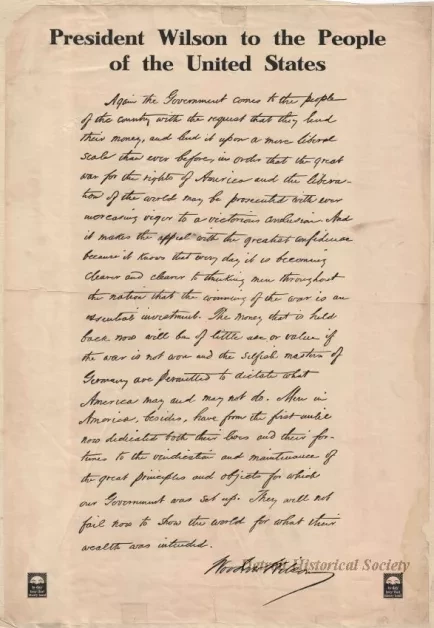 President Wilson to the People
of the United States
Again the Government comes to the people
of the country with the request that they lend
their money, and lend it upon a more liberal
scale than ever before, in order that the great
war for the rights of America and the libera-
tion of the world may be prosecuted with ever
increasing vigor to a victorious conclusion. And
it makes the appeal with the greatest confidence
because it knows that every day it is becoming
clearer and clearer to thinking men throughout
the nation that the winning of the war is an
essential investment. The money that is held
back now will be of little use or value if
the war is not won and the selfish masters of
Germany are permitted to dictate what
America may and may not do. Men in
America, besides, have from the first until
now dedicated both their lives and their for-
tunes to the vindication and maintenance of
the great principles and objects for which
our Government was set up. They will not
fail now to show the world for what their
wealth was intended.
Woodrow Wilson
Detroit Historical Society